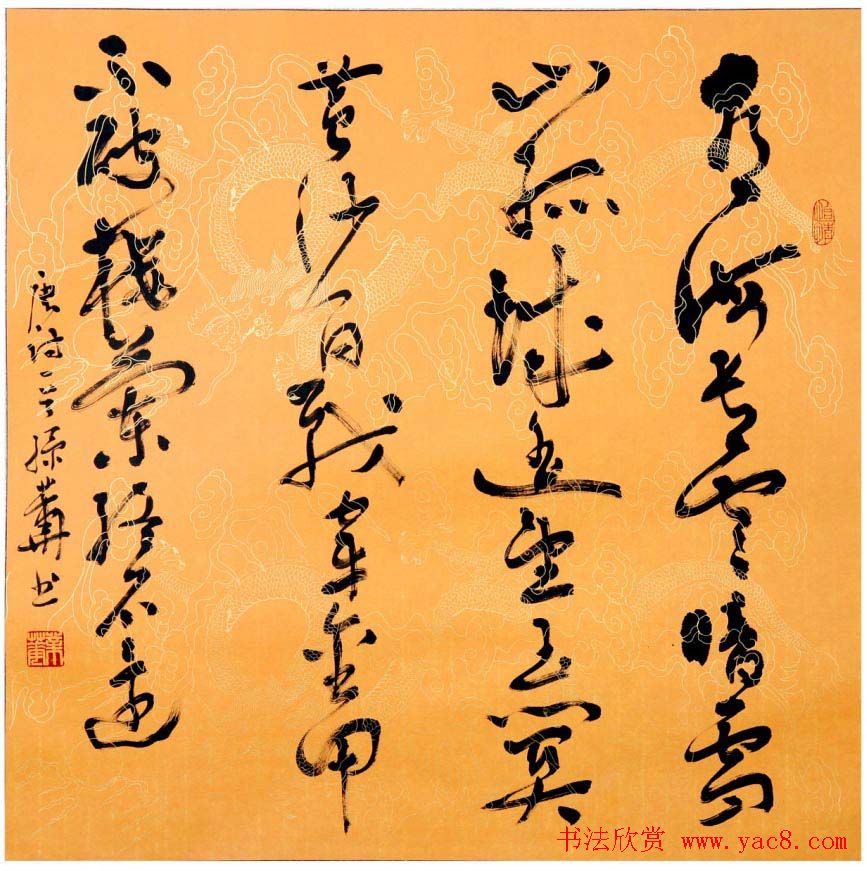 青海长云暗雪
山孤城遥望玉门关
黄沙百战穿金甲
不破楼兰终不还
唐诗一首 书
书法欣赏 www.yac8.com